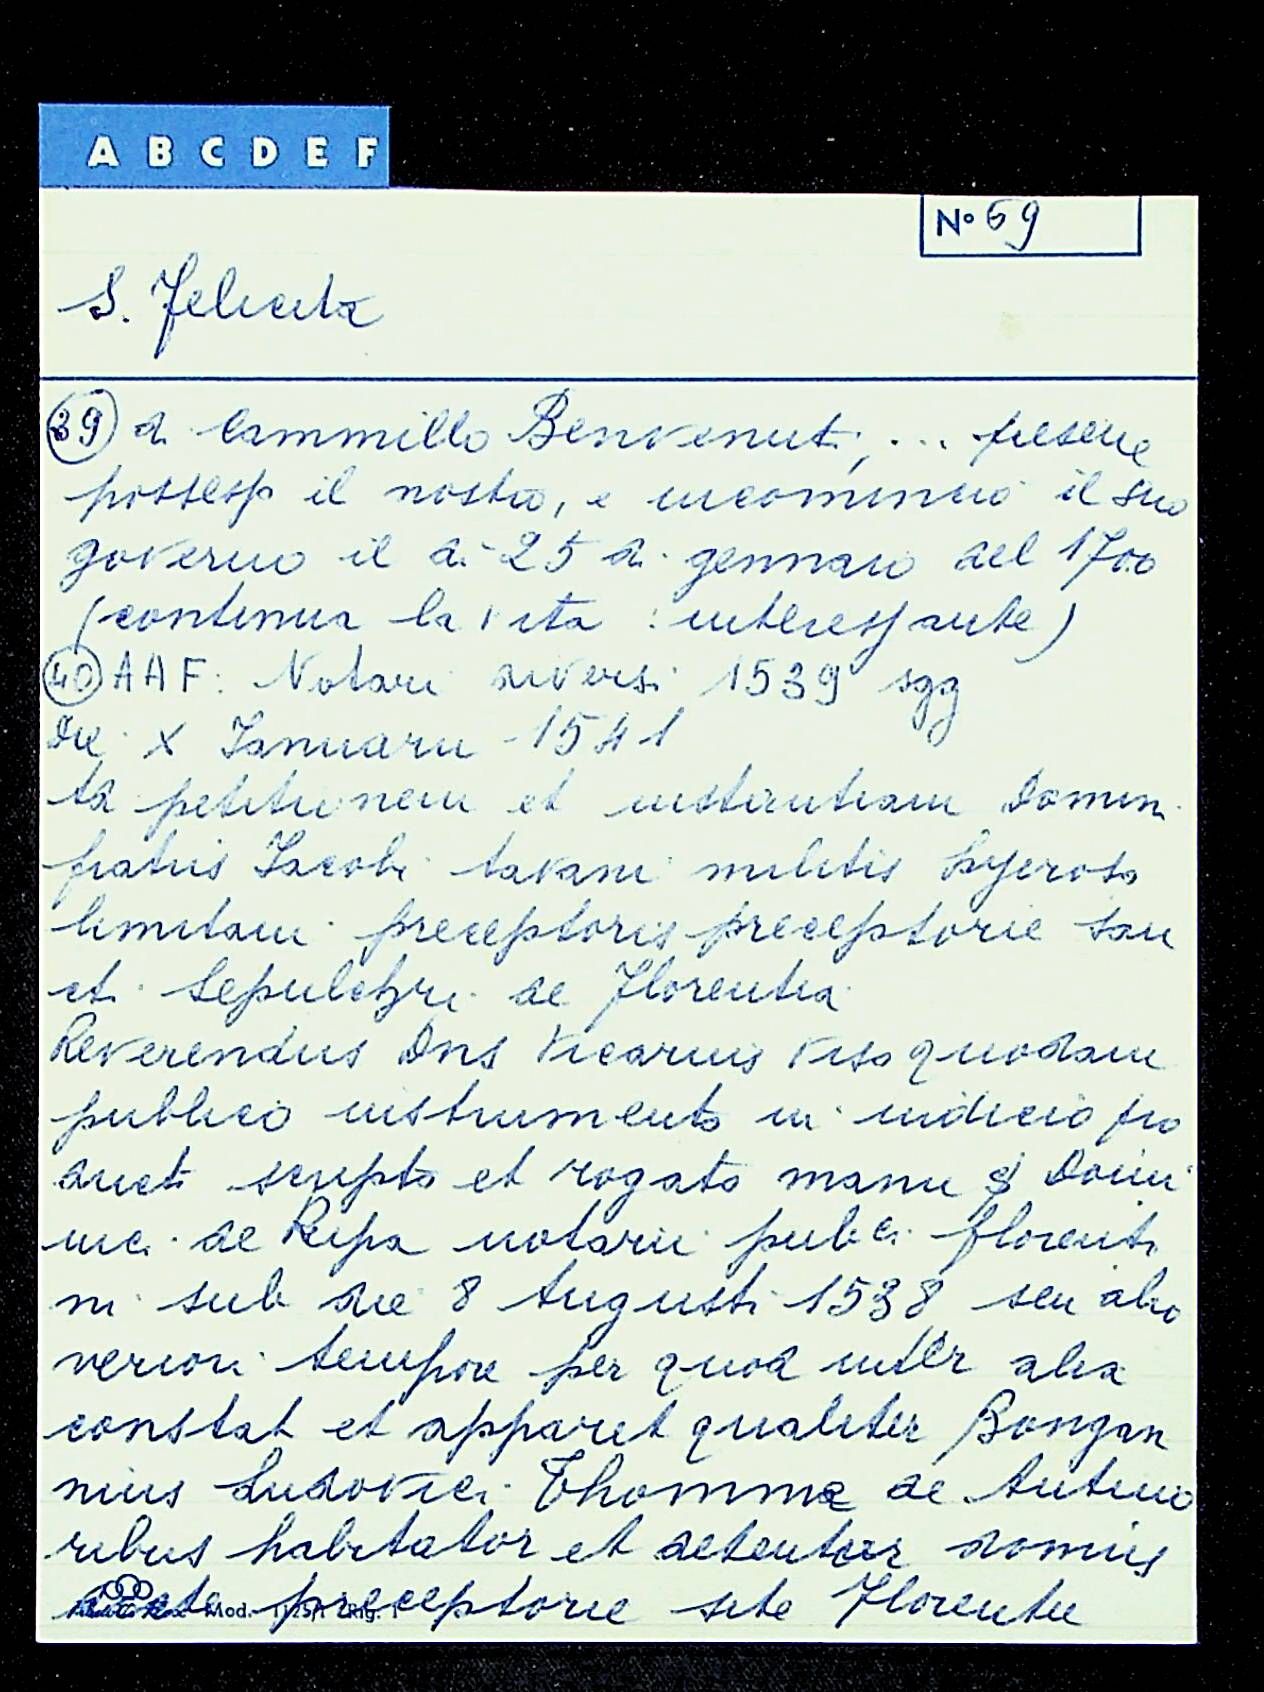 A B C D E F
Nº 69
S. Felicita
39 di Cammillo Benvenuti, ... prese
possesso il nostro, e incominciò il suo
governo il dì 25 di gennaio del 1700
(continua la vita : interessante)
40 AAF: Notari diversi 1539 sgg
Die X Ianuarii 1541
Ad petitionem et instantiam Domini
fratris Iacobi tavani militis hyeroso
limitani preceptoris preceptorie San
cti Sepulchri de Florentia
Reverendus Dns Vicarius viso quodam
publico instrumento in iudicio pro
ducti scripto et rogato manu Domi
nici de Ripa notarii publici florenti
ni sub die 8 Augusti 1538 seu alio
veriori tempore per quod inter alia
constat et apparet qualiter Bongian
nius Ludovici Thomma de Antino
ribus habitator et detentor domus
preceptorie site Florentie
Mod.